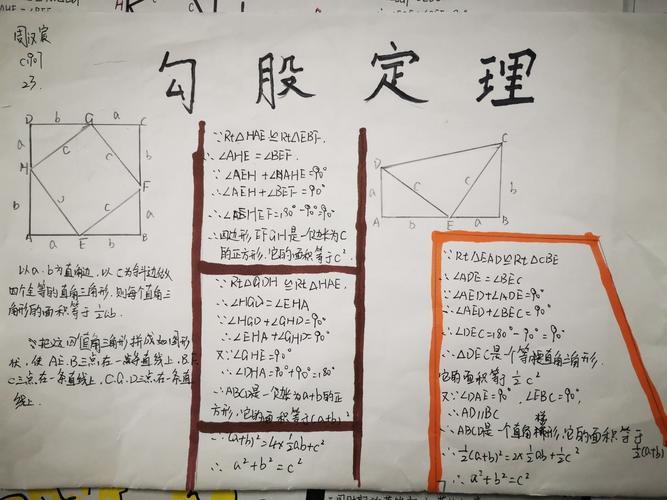 勾股定理
周汉宸
C901
23.
D b G a C
a c c b
H F
b c c a
A a E b B
以a.b为直角边,以c为斜边做
四个全等的直角三角形,则每个直角三
角形的面积等于½ab.
把这四直角三角形拼成如图形
状,使A.E.B三点在一条直线上,B.F.
C三点在一条直线上,C.G.D三点在一条直
线上.
∵Rt△HAE≌Rt△EBF,
∴∠AHE=∠BEF.
∵∠AEH+∠AHE=90°
∴∠AEH+∠BEF=90°
∴∠HEF=180°-90°=90°
∴四边形EFGH是一个边长为C
的正方形.它的面积等于c².
∵Rt△GDH≌Rt△HAE,
∴∠HGD=∠EHA
∵∠HGD+∠GHD=90°
∴∠EHA+∠GHD=90°
又∵∠GHE=90°
∴∠DHA=90°+90°=180°
∴ABCD是一个边长为a+b的正
方形,它的面积等于(a+b)²
∴(a+b)²=4×½ab+c²
∴a²+b²=c²
C
D
a c c b
A b E a B
∵Rt△EAD≌Rt△CBE
∴∠ADE=∠BEC
∵∠AED+∠ADE=90°
∴∠AED+∠BEC=90°
∴∠DEC=180°-90°=90°
∴△DEC是个等腰直角三角形,
它的面积等于½c²
又∵∠DAE=90°,∠EBC=90°,
∴AD∥BC
∴ABCD是一个直角梯形,它的面积等于
½(a+b)²
∴½(a+b)²=2×½ab+½c²
∴a²+b²=c²